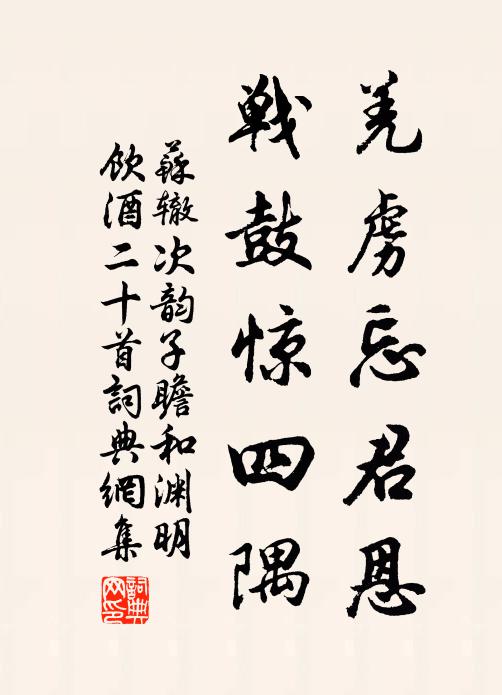 羌虏忘君恩
戦鼓惊四隅
蘇辙次韵子瞻和渊明
飲酒二十首詞典網集
詞典网印